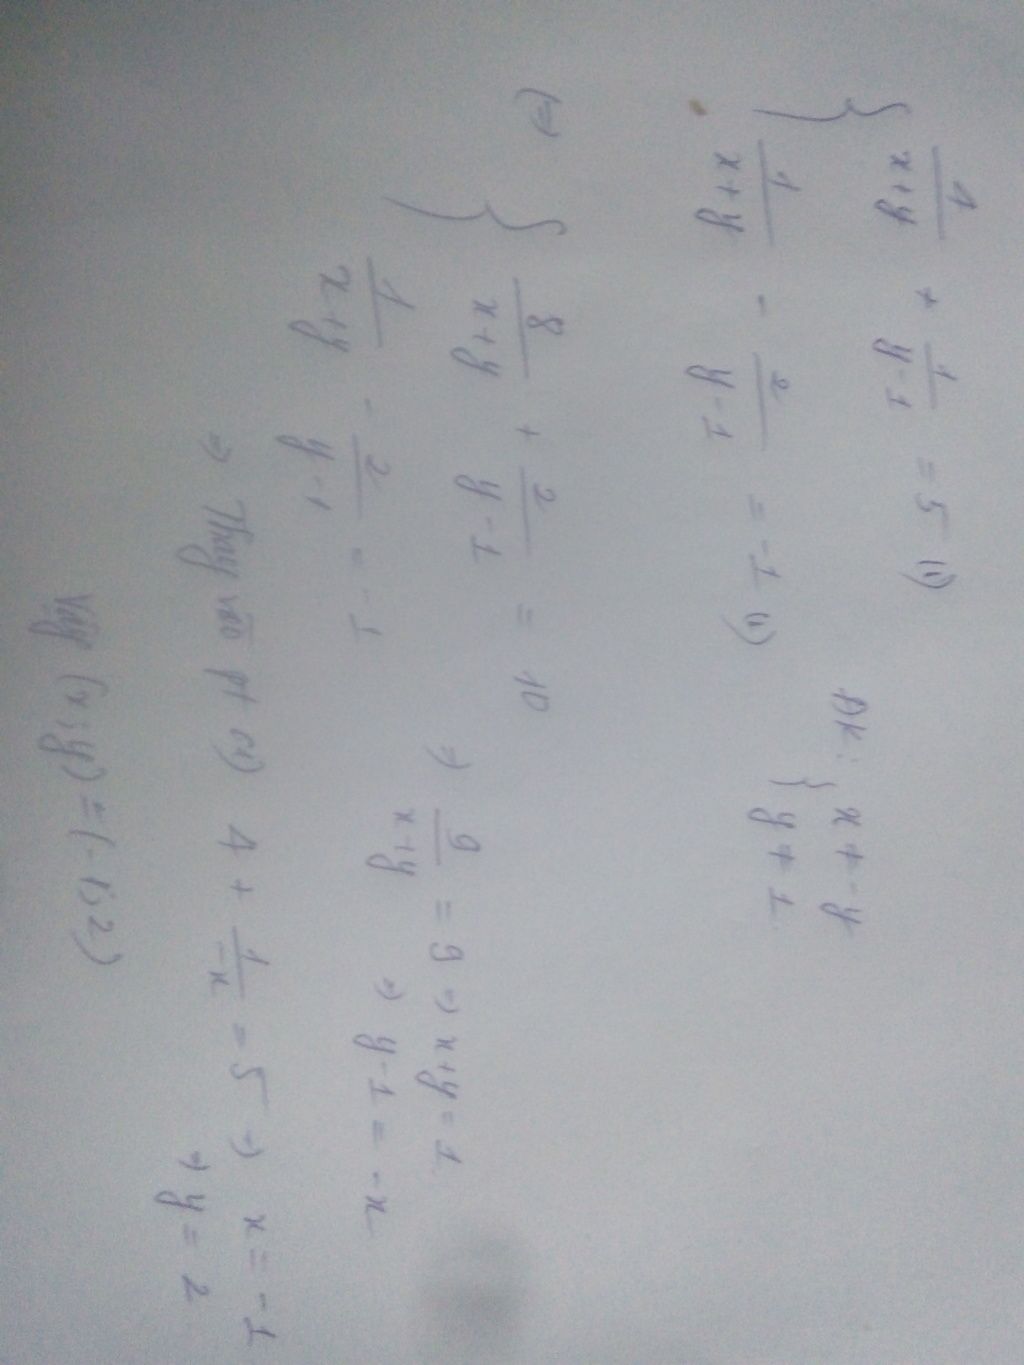 4/(x+y) + 1/(y-1) = 5 (1)
1/(x+y) - 2/(y-1) = -1 (1)
ĐK: { x ≠ -y
y ≠ 1
(=) { 8/(x+y) + 2/(y-1) = 10
1/(x+y) - 2/(y-1) = -1
=) 9/(x+y) = 9 => x+y = 1
=) y-1 = -x
=) Thay vào pt (1) 4 + 1/-x = 5 =) x = -1
=) y = 2
Vậy (x; y) = (-1; 2)